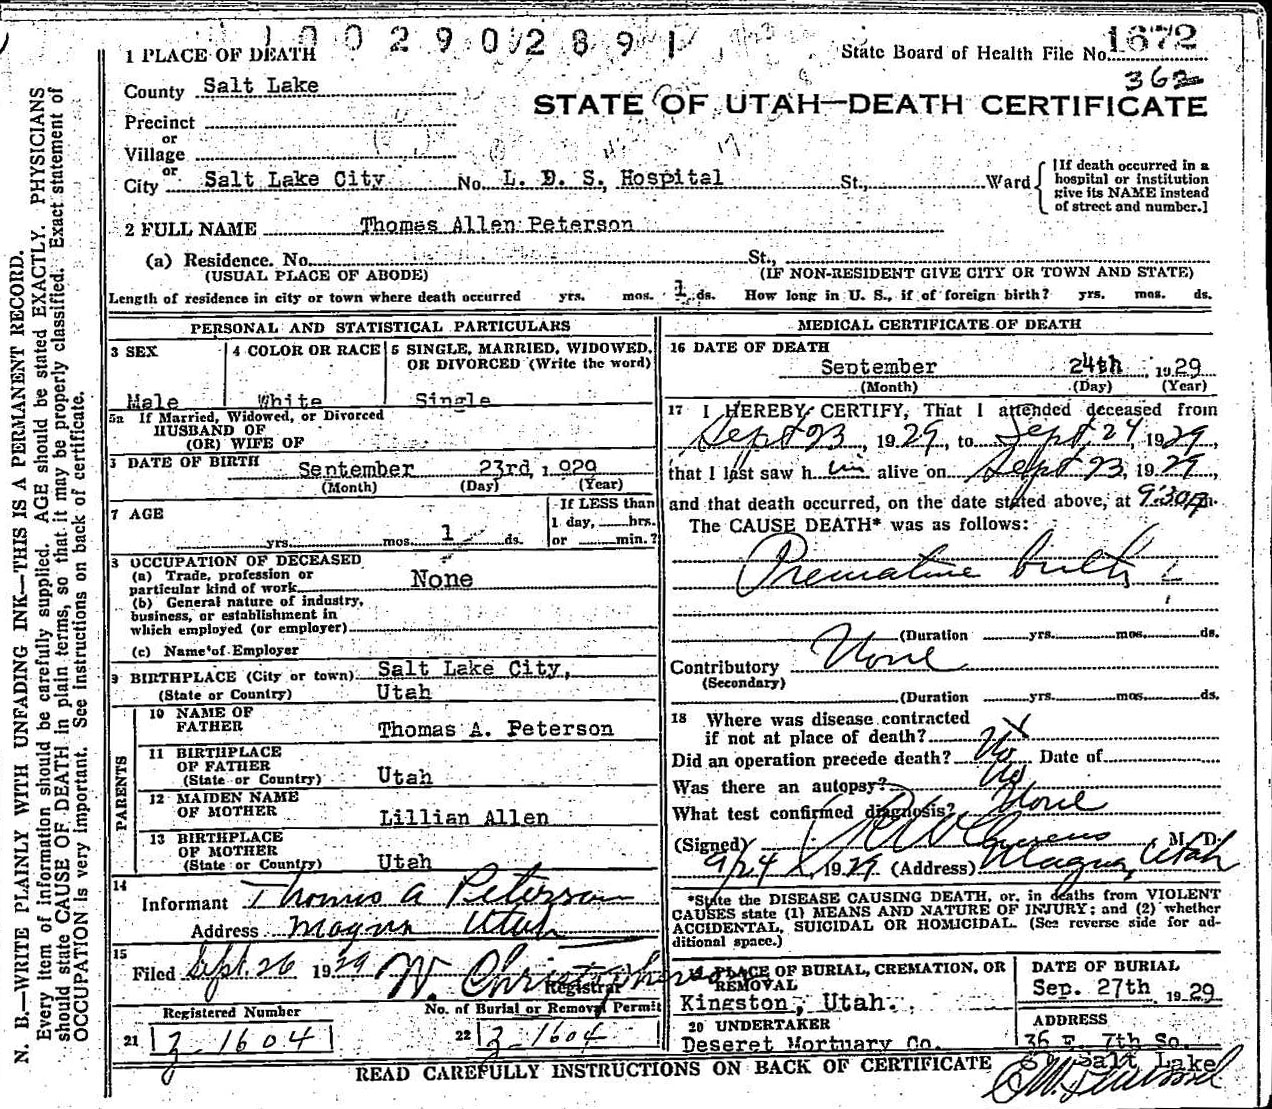 1002902891
1 PLACE OF DEATH
State Board of Health File No. 1672
362
County Salt Lake
STATE OF UTAH—DEATH CERTIFICATE
Precinct
or
Village
or
City Salt Lake City No. L. D. S. Hospital St., Ward
[If death occurred in a
hospital or institution
give its NAME instead
of street and number.]
2 FULL NAME Thomas Allen Peterson
(a) Residence. No. St.,
(USUAL PLACE OF ABODE) (IF NON-RESIDENT GIVE CITY OR TOWN AND STATE)
Length of residence in city or town where death occurred yrs. mos. 1 ds. How long in U. S., if of foreign birth? yrs. mos. ds.
PERSONAL AND STATISTICAL PARTICULARS
3 SEX
Male
4 COLOR OR RACE
White
5 SINGLE, MARRIED, WIDOWED,
OR DIVORCED (Write the word)
Single
5a If Married, Widowed, or Divorced
HUSBAND OF
(OR) WIFE OF
DATE OF BIRTH September 23rd, 1 929
(Month) (Day) (Year)
7 AGE
yrs. mos. 1 ds.
If LESS than
1 day, hrs.
or min.?
OCCUPATION OF DECEASED
(a) Trade, profession or
particular kind of work None
(b) General nature of industry,
business, or establishment in
which employed (or employer)
(c) Name of Employer
9 BIRTHPLACE (City or town) Salt Lake City,
(State or Country) Utah
PARENTS
10 NAME OF
FATHER Thomas A. Peterson
11 BIRTHPLACE
OF FATHER
(State or Country) Utah
12 MAIDEN NAME
OF MOTHER Lillian Allen
13 BIRTHPLACE
OF MOTHER
(State or Country) Utah
14
Informant Thomas A Peterson
Address Magna Utah
15
Filed Sept. 26 1929 W. Christopherson
Registrar
Registered Number
21 2-1604
No. of Burial or Removal Permit
22 2-1604
MEDICAL CERTIFICATE OF DEATH
16 DATE OF DEATH
September 24th, 1929
(Month) (Day) (Year)
17 I HEREBY CERTIFY, That I attended deceased from
Sept 23, 1929, to Sept. 24 1929,
that I last saw h im alive on Sept 23, 1929,
and that death occurred, on the date stated above, at 9:30 m.
The CAUSE DEATH* was as follows:
Premature birth
(Duration yrs. mos. ds.
Contributory None
(Secondary)
(Duration yrs. mos. ds.
18 Where was disease contracted
if not at place of death? X
Did an operation precede death? No Date of
Was there an autopsy? No
What test confirmed diagnosis? None
(Signed) M. D.
9/24 1929 (Address) Magna, Utah
*State the DISEASE CAUSING DEATH, or, in deaths from VIOLENT
CAUSES state (1) MEANS AND NATURE OF INJURY; and (2) whether
ACCIDENTAL, SUICIDAL OR HOMICIDAL. (See reverse side for ad-
ditional space.)
PLACE OF BURIAL, CREMATION, OR
REMOVAL
Kingston, Utah.
DATE OF BURIAL
Sep. 27th 1929
20 UNDERTAKER
Deseret Mortuary Co.
ADDRESS
36 E. 7th So.
Salt Lake
READ CAREFULLY INSTRUCTIONS ON BACK OF CERTIFICATE
N. B.—WRITE PLAINLY WITH UNFADING INK—THIS IS A PERMANENT RECORD.
Every item of information should be carefully supplied. AGE should be stated EXACTLY. PHYSICIANS
should state CAUSE OF DEATH in plain terms, so that it may be properly classified. Exact statement of
OCCUPATION is very important. See instructions on back of certificate.